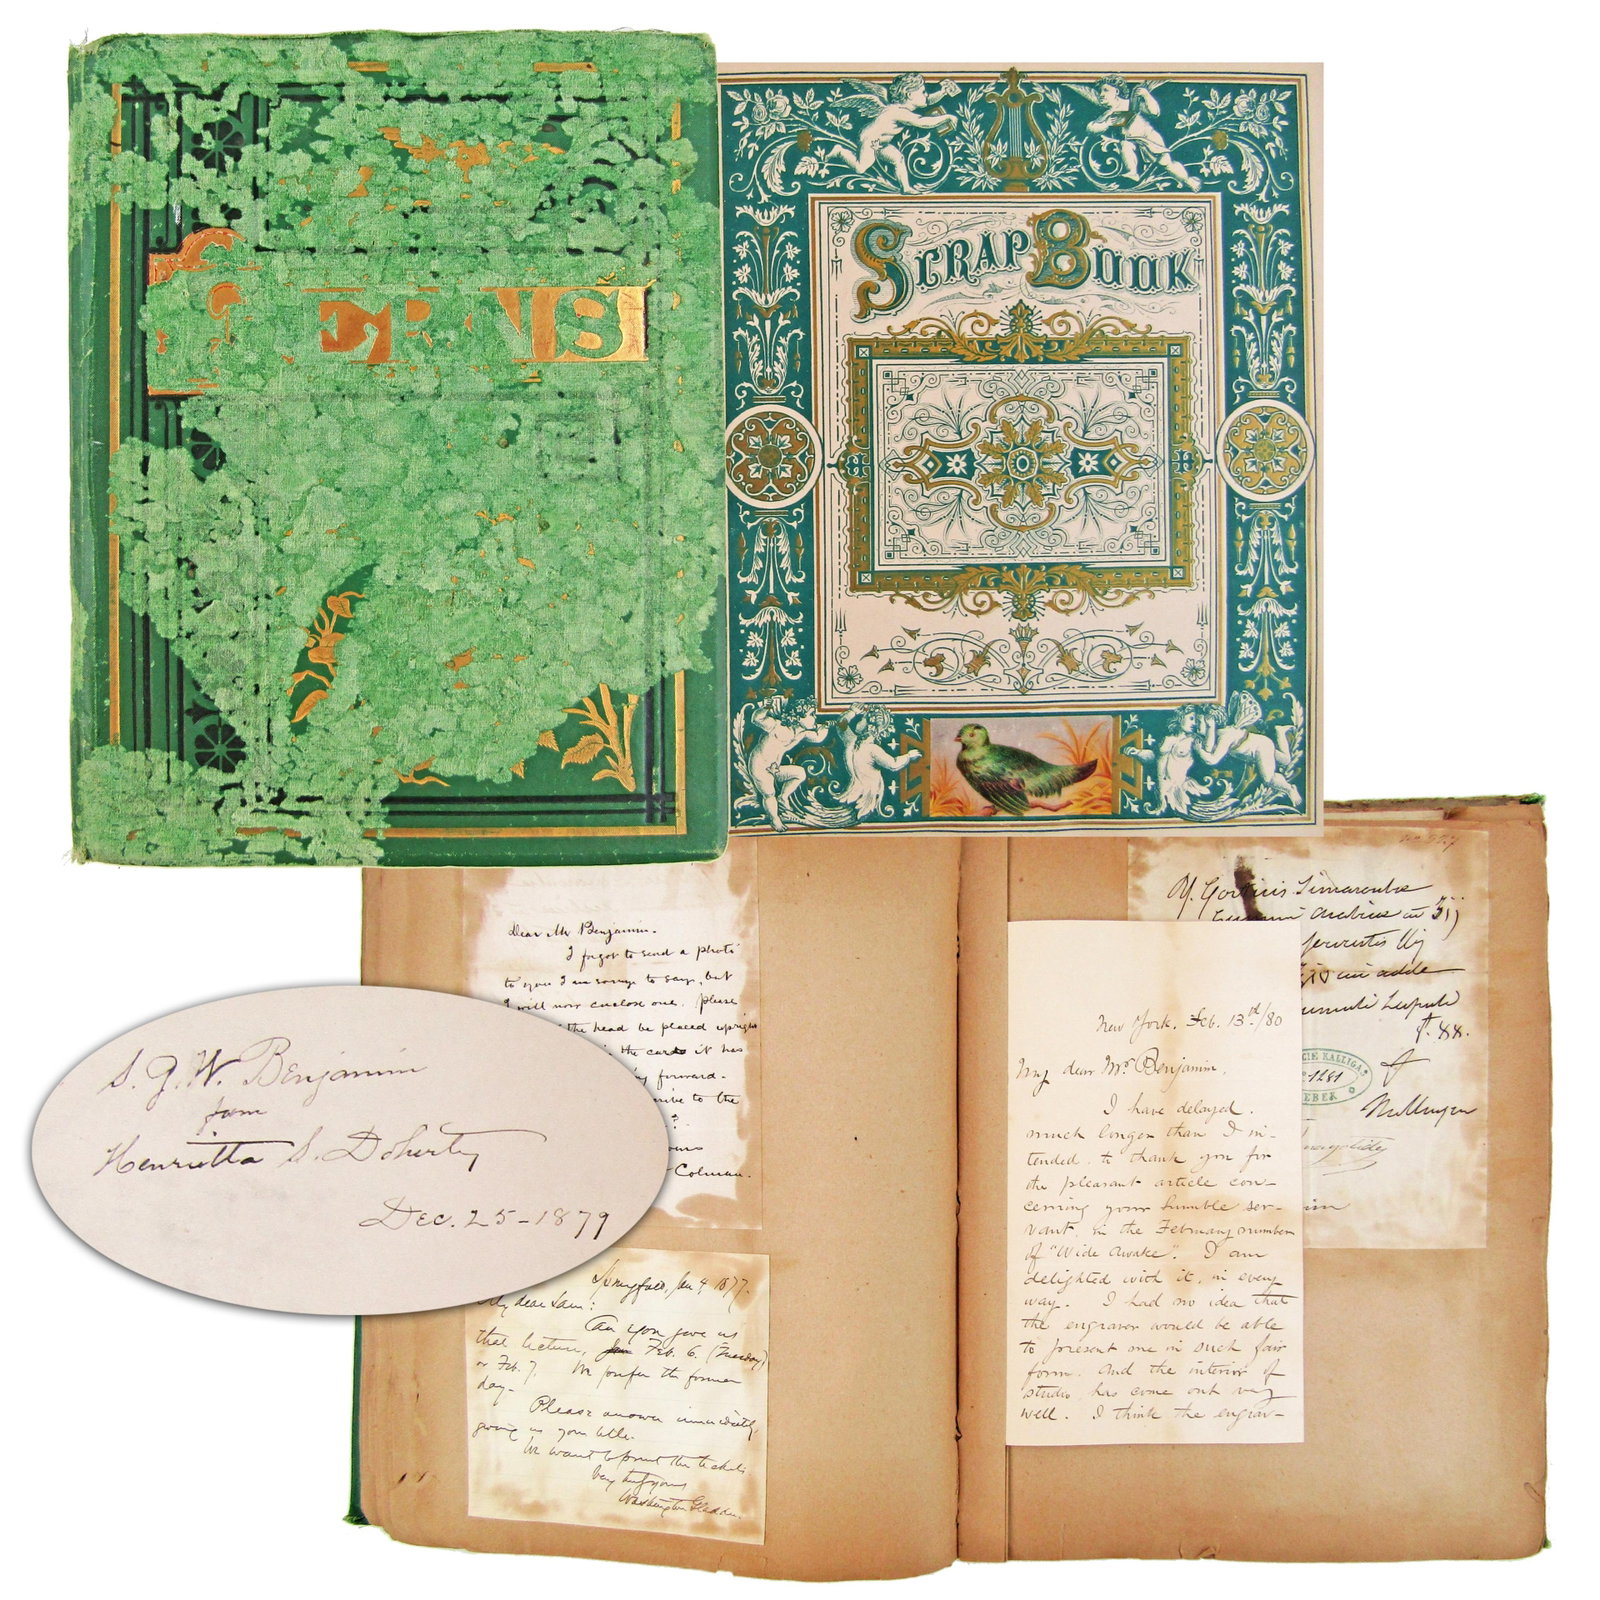 SCRAP BOOK
Dear Mr Benjamin.
I forgot to send a photo
to you I am sorry to say, but
I will now enclose one. Please
the head be placed upright
the card it has
forward.
to the
?
Colman.
S. G. W. Benjamin
from
Henrietta S. Doherty
Dec. 25 - 1879
Springfield, Jan 4 1877.
My dear Sam:
Can you give us
that lecture, Feb. 6. (Tuesday)
or Feb. 7. We prefer the former
day.
Please answer immediately,
giving us your title.
We want to print the tickets
Very truly yours
Washington Gladden.
New York, Feb. 13th/80
My dear Mr. Benjamin,
I have delayed.
much longer than I in-
tended, to thank you for
the pleasant article con-
cerning your humble ser-
vant, in the February number
of "Wide Awake". I am
delighted with it, in every
way. I had no idea that
the engraver would be able
to present me in such fair
form. And the interior of
studio has come out very
well. I think the engrav-
Simaruba
adde
CIE KALLIGAS
1281
EBER